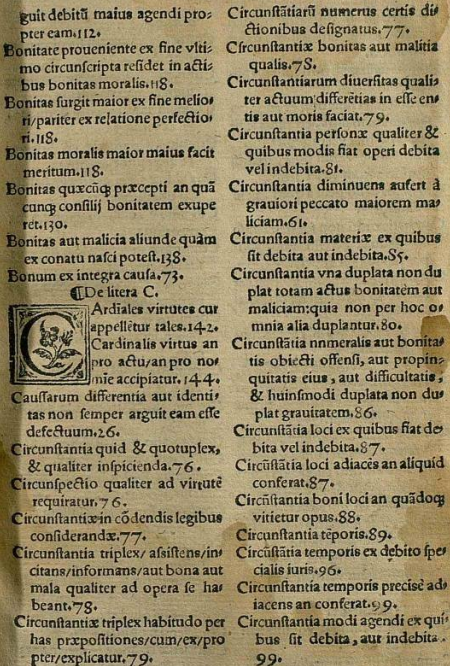 guit debitū maius agendi pro⸗
pter eam.112.
Bonitate proueniente ex fine vlti⸗
mo circunscripta residet in acti⸗
bus bonitas moralis.118.
Bonitas surgit maior ex fine melio⸗
ri/pariter ex relatione perfectio⸗
ri.118.
Bonitas moralis maior maius facit
meritum.118.
Bonitas quæcūq; præcepti an quā
cunq; consilij bonitatem exupe
ret.130.
Bonitas aut malicia aliunde quàm
ex conatu nasci potest.138.
Bonum ex integra causa.73.
¶De litera C.
CArdiales virtutes cur
appellētur tales.142.
Cardinalis virtus an
pro actu/an pro no⸗
mīe accipiatur.144.
Caussarum differentia aut identi⸗
tas non semper arguit eam esse
defectuum.26.
Circunstantia quid & quotuplex,
& qualiter inspicienda.76.
Circunspectio qualiter ad virtutē
requiratur.76.
Circunstantiæ in cōdendis legibus
considerandæ.77.
Circunstantia triplex/assistens/in⸗
citans/informans/aut bona aut
mala qualiter ad opera se ha⸗
beant.78.
Circunstantiæ triplex habitudo per
has præpositiones/cum/ex/pro
pter/explicatur.79.
Circunstātiarū numerus certis di⸗
ctionibus designatus.77.
Circunstantiæ bonitas aut malitia
qualis.78.
Circunstantiarum diuersitas quali⸗
ter actuum differētias in esse en⸗
tis aut moris faciat.79.
Circunstantia personæ qualiter &
quibus modis fiat operi debita
vel indebita.81.
Circunstantia diminuens aufert à
grauiori peccato maiorem ma⸗
liciam.61.
Circunstantia materiæ ex quibus
fit debita aut indebita.85.
Circunstantia vna duplata non du
plat totam actus bonitatem aut
maliciam:quia non per hoc o⸗
mnia alia duplantur.80.
Circunstātia nnmeralis aut bonita⸗
tis obiecti offensi, aut propin⸗
quitatis eius, aut difficultatis,
& huinsmodi duplata non du⸗
plat grauitatem.86.
Circunstātia loci ex quibus fiat de⸗
bita vel indebita.87.
Circūstātia loci adiacēs an aliquid
conferat.87.
Circūstantia boni loci an quādoq;
vitietur opus.88.
Circunstantia tēporis.89.
Circūstātia temporis ex debito spe⸗
cialis iuris.96.
Circunstantia temporis precisè ad⸗
iacens an conferat.99.
Circunstantia modi agendi ex qui⸗
bus fit debita, aut indebita.
99.